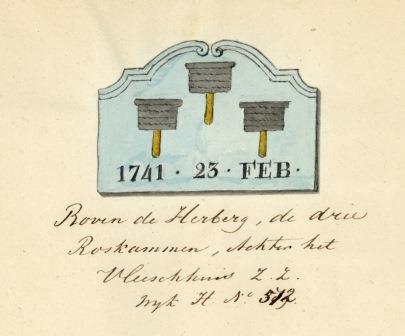 1741 · 23 · FEB ·
Boven de Herberg, de drie
Roskammen, Achter het
Vleeschhuis Z. Z.
Wyk H. No 512.